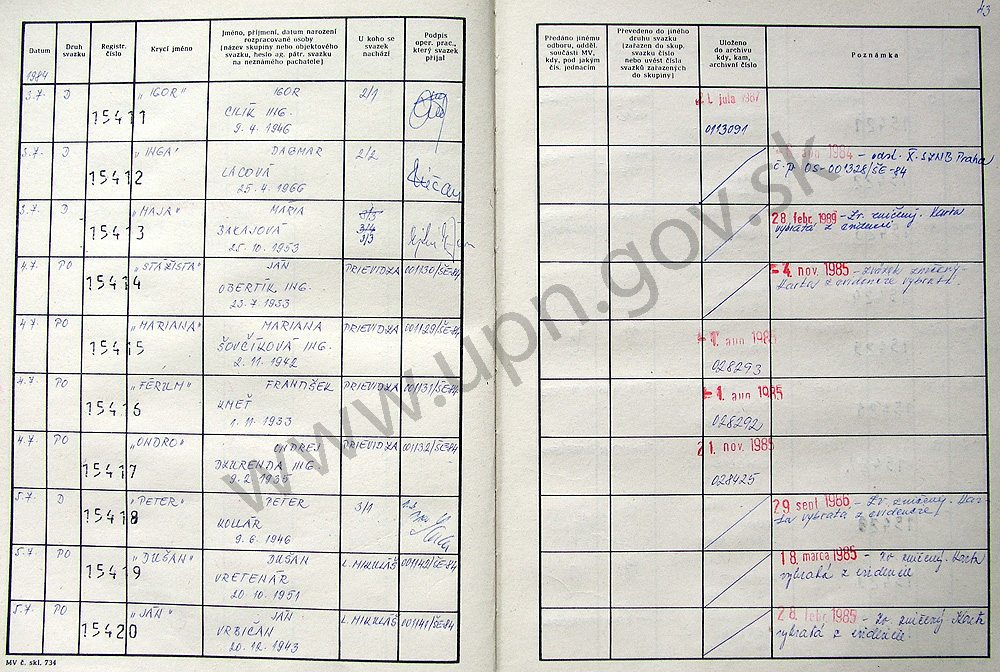 43
Datum
Druh svazku
Registr. číslo
Krycí jméno
Jméno, příjmení, datum narození rozpracované osoby (název skupiny nebo objektového svazku, heslo ag. pátr. svazku na neznámého pachatele)
U koho se svazek nachází
Podpis oper. prac., který svazek přijal
Předáno jinému odboru, odděl. součásti MV, kdy, pod jakým čís. jednacím
Převedeno do jiného druhu svazku (zařazen do skup. svazku číslo nebo uvést čísla svazků zařazených do skupiny)
Uloženo do archivu kdy, kam, archivní číslo
Poznámka
1984
3.7. D 15411 "IGOR" IGOR 2/1 21. júla 1987
CILÍK ING. 0113091
9.4.1946
3.7. D 15412 "INGA" DAGMAR 2/2 1984 - odd. X. SZNB Praha
LACOVÁ č.p. OS-001328/ŠE-84
25.4.1966
3.7. D 15413 "MAJA" MARIA 3/3 28. febr. 1989 - Zv. zničený. Karta
BAKAJOVÁ 3/4 vybratá z evidencie
25.10.1953 3/3
4.7. PO 15414 "STÁŽISTA" JÁN PRIEVIDZA 001130/ŠE-84 -4. nov. 1985 - zväzok zničený.
OBERTÍK, ING. Karta z evidencie vybratá.
23.7.1933
4.7. PO 15415 "MARIANA" MARIANA PRIEVIDZA 001129/ŠE-84 1. aug. 1985
ŠOVČÍKOVÁ ING. 028293
2.11.1942
4.7. PO 15416 "FERILM" FRANTIŠEK PRIEVIDZA 001131/ŠE-84 -1. aug. 1985
KMEŤ 028292
1.11.1933
4.7. PO 15417 "ONDRO" ONDREJ PRIEVIDZA 001132/ŠE-84 21. nov. 1985
DZURENDA ING. 028425
9.2.1935
5.7. D 15418 "PETER" PETER 3/1 29. sept. 1986 - Zv. zničený. Kar-
KOLLÁR ta vybratá z evidencie!
9.6.1946
5.7. PO 15419 "DUŠAN" DUŠAN L. MIKULÁŠ 001142/ŠE-84 18. marca 1985 - Zv. zničený. Karta
VRETENÁR vybratá z evidencie
20.10.1951
5.7. PO 15420 "JÁN" JÁN L. MIKULÁŠ 001141/ŠE-84 28. febr. 1985 - Zv. zničený Karta
VRBIČAN vybratá z evidencie.
20.12.1943
MV č. skl. 734
www.upn.gov.sk